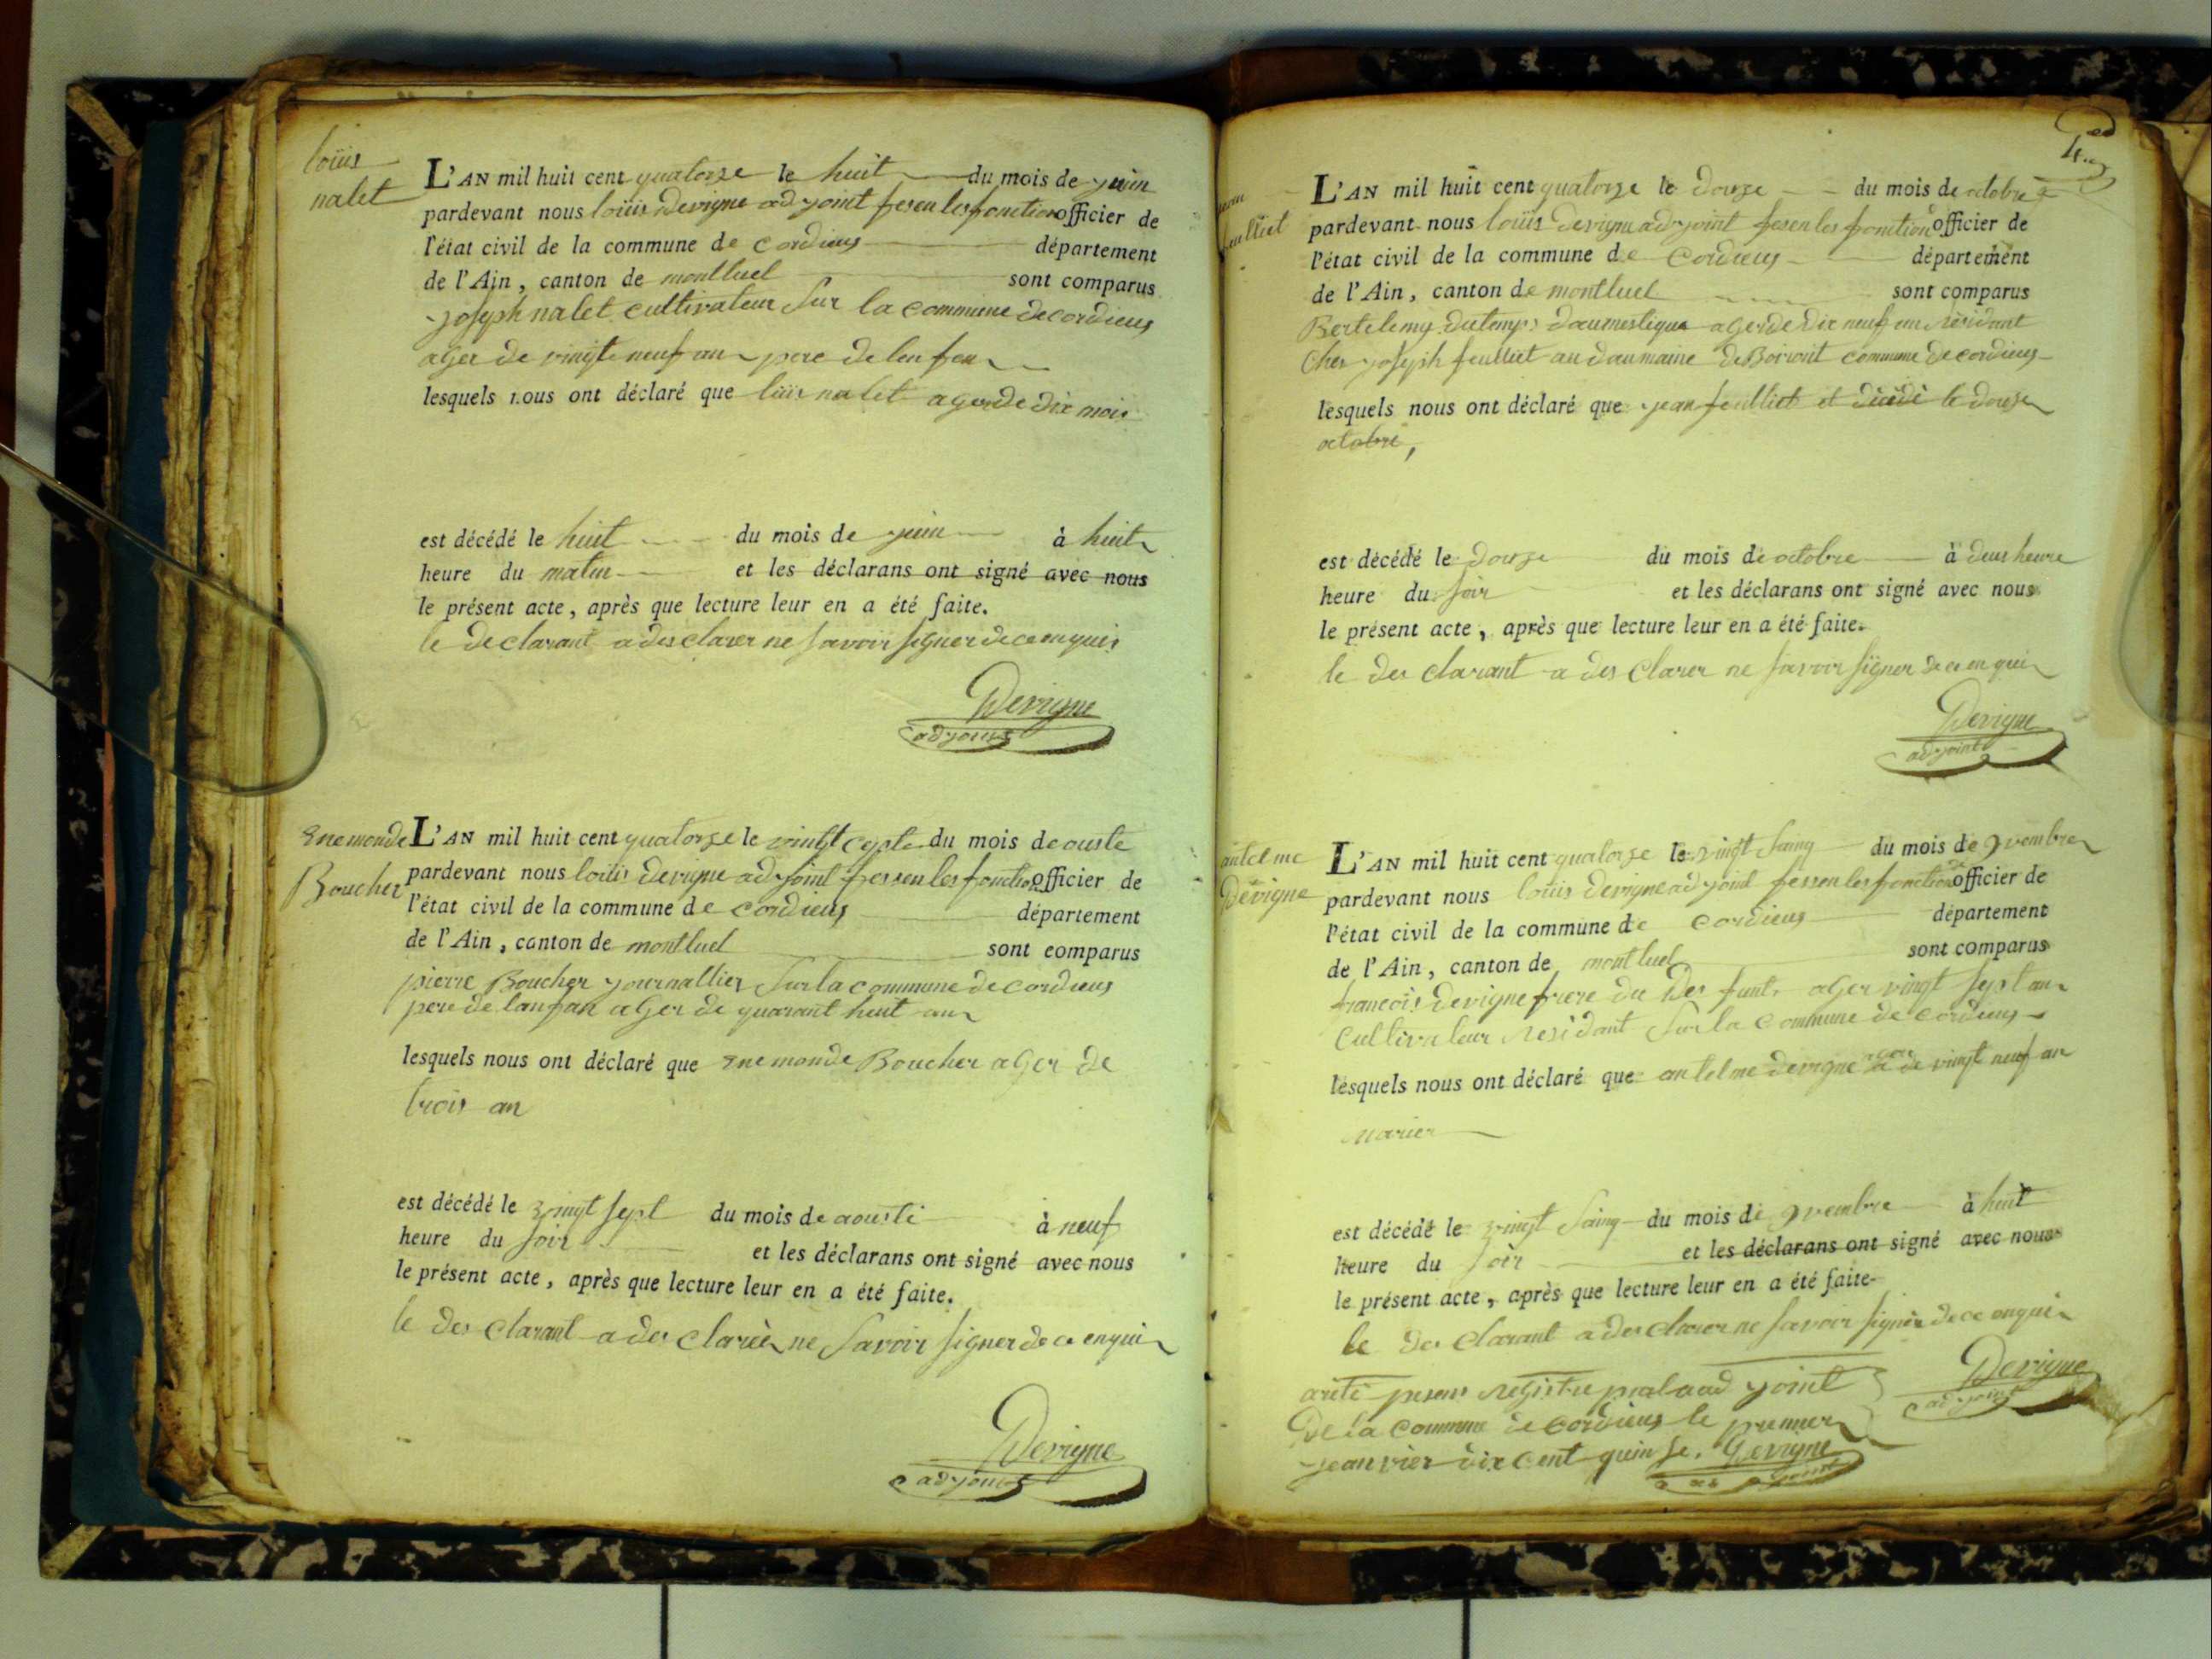 loüis
nalet
L'AN mil huit cent quatorze le huit du mois de juin
pardevant nous loüis Devigne adjoint fesen les fonction officier de
l'état civil de la commune de cordieus département
de l'Ain, canton de montluel sont comparus
joseph nalet cultivateur sur la commune de cordieus
ager de vingt neuf an pere de lenfen
lesquels nous ont déclaré que luis nalet ager de dix mois
est décédé le huit du mois de juin à huit
heure du matin et les déclarans ont signé avec nous
le présent acte, après que lecture leur en a été faite.
le declarant a desclarer ne savoir signer de ce enquis
Devigne
adjoint
Enemonde
Boucher
L'AN mil huit cent quatorze le vingt cepte du mois de auste
pardevant nous loüis devigne adjoint fessen les fonction officier de
l'état civil de la commune de cordieus département
de l'Ain, canton de montluel sont comparus
pierre Boucher journallier sur la commune de cordieus
pere de lanfan ager de quarant huit an
lesquels nous ont déclaré que Enemonde Boucher ager de
trois an
est décédé le vingt sept du mois de aouste à neuf
heure du soir et les déclarans ont signé avec nous
le présent acte, après que lecture leur en a été faite.
le des clarant a des clarer ne savoir signer de ce enquis
Devigne
adjoint
jean
feulliet
L'AN mil huit cent quatorze le douze du mois de octobre
pardevant nous loüis devigne adjoint fesen les fonction officier de
l'état civil de la commune de Cordieus département
de l'Ain, canton de montluel sont comparus
Bertelemy dutemps doumestique ager de dix neuf an résidant
Ches joseph feulliet au doumaine de commune de cordieus
lesquels nous ont déclaré que jean feulliet et décédé le douze
octobre,
est décédé le douze du mois de octobre à deus heure
heure du soir et les déclarans ont signé avec nous
le présent acte, après que lecture leur en a été faite.
le des clarant a des clarer ne savoir signer de ce en quis
Devigne
adjoint
antelme
Devigne
L'AN mil huit cent quatorze le vingt saing du mois de 9vembre
pardevant nous loüis devigne adjoint fessen les fonction officier de
l'état civil de la commune de cordieus département
de l'Ain, canton de montluel sont comparus
francois devigne frere du des funt ager vingt sept an
Cultivateur residant sur la Commune de cordieus
lesquels nous ont déclaré que antelme devigne ager de vingt neuf an
marier
est décédé le vingt saing du mois de 9vembre à huit
heure du soir et les déclarans ont signé avec nous
le présent acte, après que lecture leur en a été faite.
le des clarant a des clarer ne savoir signer de ce enquis
Devigne
adjoint
areté registre adjoint
De la commune de cordieus le premier
jeanvier dix cent quinse. Devigne
adjoint